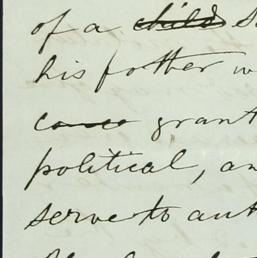 of a child
his father
grant
political, an
serve to aut